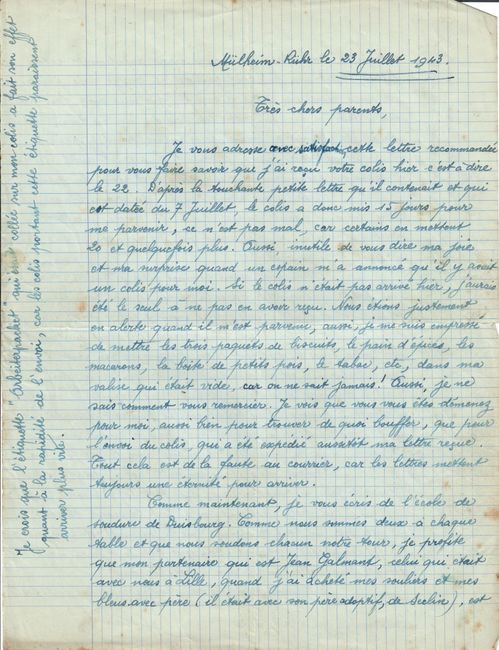 Mülheim-Ruhr le 23 Juillet 1943.
Très chers parents,
Je vous adresse cette lettre recommandée
pour vous faire savoir que j'ai reçu votre colis hier c'est à dire
le 22. D'après la touchante petite lettre qu'il contenait et qui
est datée du 7 Juillet, le colis a donc mis 15 jours pour
me parvenir, ce n'est pas mal, car certains en mettent
20 et quelquefois plus. Aussi, inutile de vous dire ma joie
et ma surprise quand un copain m'a annoncé qu'il y avait
un colis pour moi. Si le colis n'était pas arrivé hier, j'aurais
été le seul à ne pas en avoir reçu. Nous étions justement
en alerte quand il m'est parvenu, aussi, je me suis empressé
de mettre les trois paquets de biscuits, le pain d'épices, les
macarons, la boîte de petits pois, le tabac, etc, dans ma
valise qui était vide, car on ne sait jamais! Aussi, je ne
sais comment vous remercier. Je vois que vous vous êtes démenez
pour moi, aussi bien pour trouver de quoi bouffer, que pour
l'envoi du colis, qui a été expédié aussitôt ma lettre reçue.
Tout cela est de la faute au courrier, car les lettres mettent
toujours une éternité pour arriver.
Comme maintenant, je vous écris de l'école de
soudure de Duisbourg. Comme nous sommes deux à chaque
table et que nous soudons chacun notre tour, je profite
que mon partenaire qui est Jean Galmant, celui qui était
avec nous à Lille, quand j'ai acheté mes souliers et mes
bleus avec père (il était avec son père adoptif, de Seclin), est
Je crois que l'étiquette "Arbeiterpacket" qui était collée sur mon colis a fait son effet
quant à la rapidité de l'envoi, car les colis portant cette étiquette paraissent
arriver plus vite.